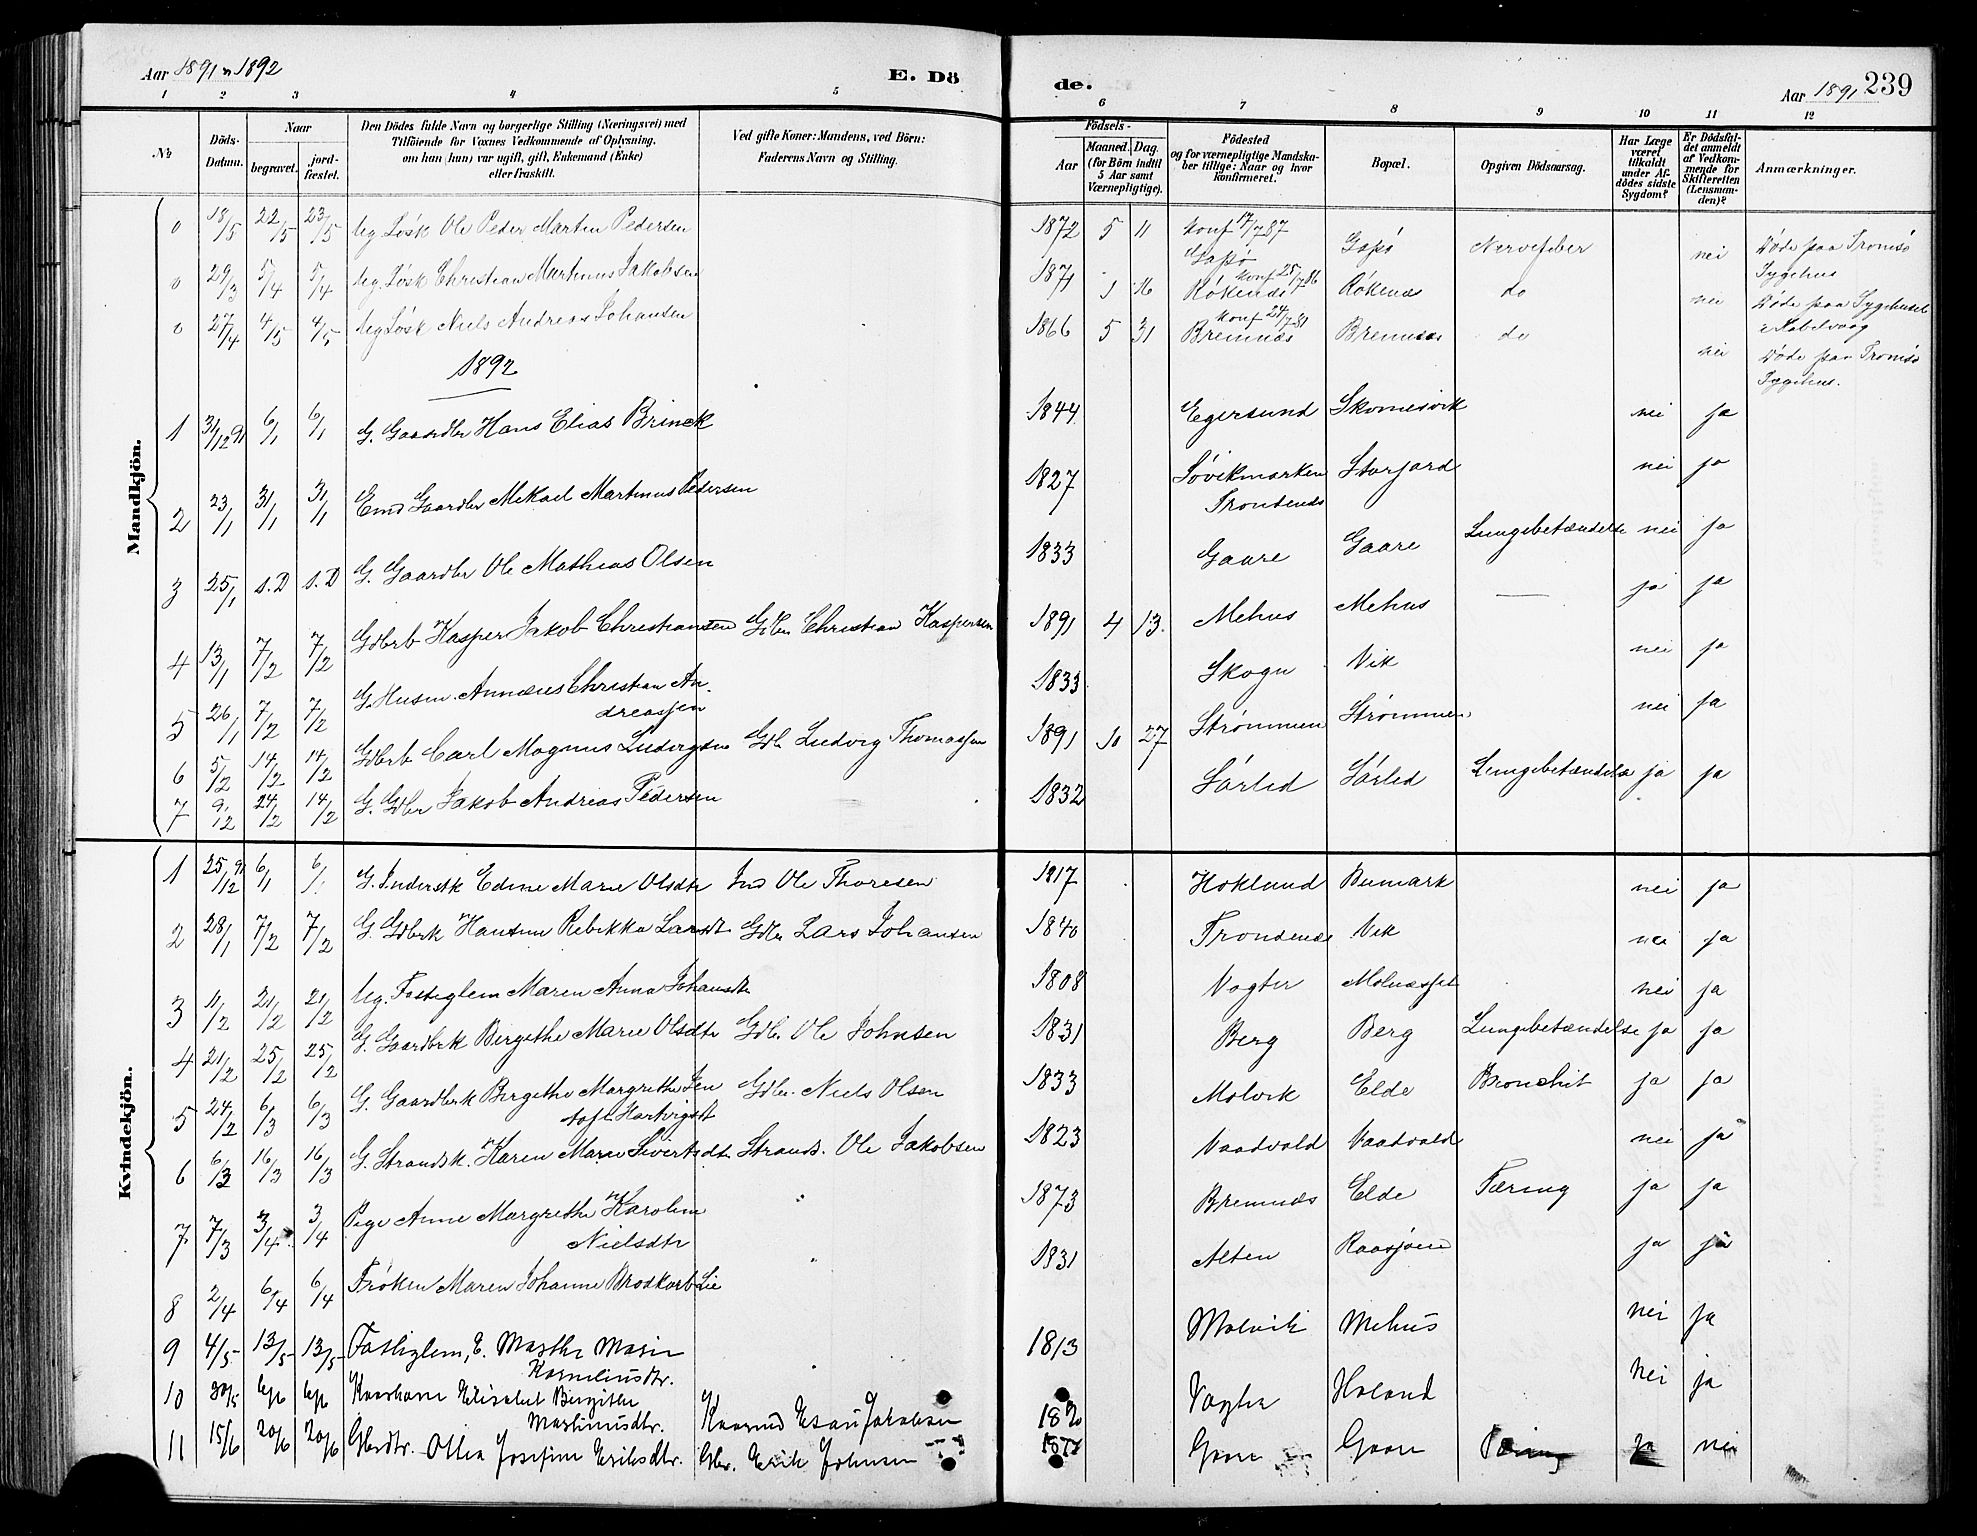 Aar 1891 1892
E. Dö
de.
Aar 1891 239
1 2 3 4 5 6 7 8 9 10 11 12
No
Döds-Datum.
Naar begravet. jord-fæstet.
Den Dödes fulde Navn og borgerlige Stilling (Næringsvei) med
Tilföiende for Voxnes Vedkommende af Oplysning,
om han (hun) var ugift, gift, Enkemand (Enke)
eller fraskilt.
Ved gifte Koner: Mandens, ved Börn:
Faderens Navn og Stilling.
Födsels-
Aar Maaned. Dag.
(for Börn indtil
5 Aar samt
Værnepligtige).
Födested
og for værnepligtige Mandska-
ber tillige: Naar og hvor
konfirmeret.
Bopæl.
Opgiven Dödsaarsag.
Har Læge
været
tilkaldt
under Af-
dödes sidste
Sygdom?
Er Dödsfal-
det anmeldt
af Vedkom-
mende for
Skifteretten
(Lensman-
den)?
Anmærkninger.
Mandkjön.
0 18/5 22/5 23/5 Ug. Løsk Ole Peder Martin Pedersen 1872 5 11 Konf 17/7 87 Gapø Gapø Nervefeber nei Døde paa Tromsø Sygehus
0 29/3 5/4 5/4 Ug. Løsk Christian Martinus Jakobsen 1871 1 16 Konf 25/7 86 Røkenæs Røkenæs do nei Døde paa Sygehuset i Kabelvaag
0 27/4 4/5 4/5 Ug Løsk Niels Andreas Johansen 1866 5 31 Konf 24/7 81 Bremnæs Bremnæs do nei Døde paa Tromsø Sygehus.
1892
1 31/12 91 6/1 6/1 G. Gaardbr Hans Elias Brinck 1844 Egersund Skomesvik nei ja
2 23/1 31/1 31/1 Emd Gaardbr Mikael Martinus Pedersen 1827 Søvikmarken Trondenæs Storjord nei ja
3 25/1 s.D s.D G. Gaardbr Ole Mathias Olsen 1833 Gaare Gaare Lungebetændelse nei ja
4 13/1 7/2 7/2 Gdbrb Kasper Jakob Christiansen Gdbr Christian Kaspersen 1891 4 13. Mehus Mehus — ja ja
5 26/1 7/2 7/2 G. Husm. Annæus Christian Andreassen 1833 Skogn Vik nei ja
6 5/2 14/2 14/2 Gdbrb Carl Magnus Ludvigsen Gdbr Ludvig Thomassen 1891 10 27 Strømmen Strømmen nei ja
7 9/2 24/2 14/2 G. Gdbr Jakob Andreas Pedersen 1832 Sørlid Sørlid Lungebetændelse ja ja
Kvindekjön.
1 25/12 91 6/1 6/1 G. Inderstk Edine Marie Olsdtr Ind Ole Thoresen 1817 Hoklund Bumark nei ja
2 28/1 7/2 7/2 G. Gdbrk Hansine Rebekka Larsdt Gdbr Lars Johansen 1840 Trondenæs Vik nei ja
3 11/2 21/2 21/2 Ug. Fattiglem Maren Anna Johansdtr 1808 Vagter Molnæsset nei ja
4 21/2 25/2 25/2 G. Gaardbrk Bergithe Marie Olsdtr Gdbr. Ole Johnsen 1831 Berg Berg Lungebetændelse ja ja
5 24/2 6/3 6/3 G. Gaardbrk Birgithe Margrethe Jentoft Hartvigsdt Gdbr. Niels Olsen 1833 Molvik Elde Bronchit ja ja
6 6/3 16/3 16/3 G. Strandsk. Karen Marie Sivertsdtr Strands. Ole Jakobsen 1823 Vaadvald Vaadvald nei ja
7 7/3 3/4 3/4 Pige Anne Margrethe Karoline Nielsdtr 1873 Bremnæs Elde Tæring ja ja
8 2/4 6/4 6/4 Frøken Maren Johanne Brodkorb Lie 1831 Alten Raasjøen ja ja
9 4/5 13/5 13/5 Fattiglem, E. Marthe Marie Korneliusdtr. 1813 Molvik Mehus nei ja
10 30/5 6/6 6/6 Elisabet Birgithe Martinusdtr. Esau Jakobsen Vagter Haland nei ja
11 15/6 20/6 20/6 Gbrdtr. Otlia Josefine Eriksdtr. Gbr. Erik Johnsen Gaare Gaare Tæring ja nei